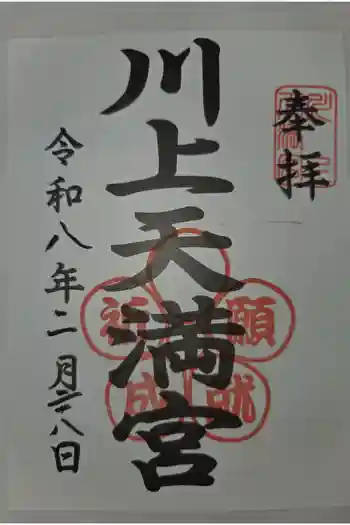 奉拝
川上天満宮
令和八年二月二十八日
祈願
成就